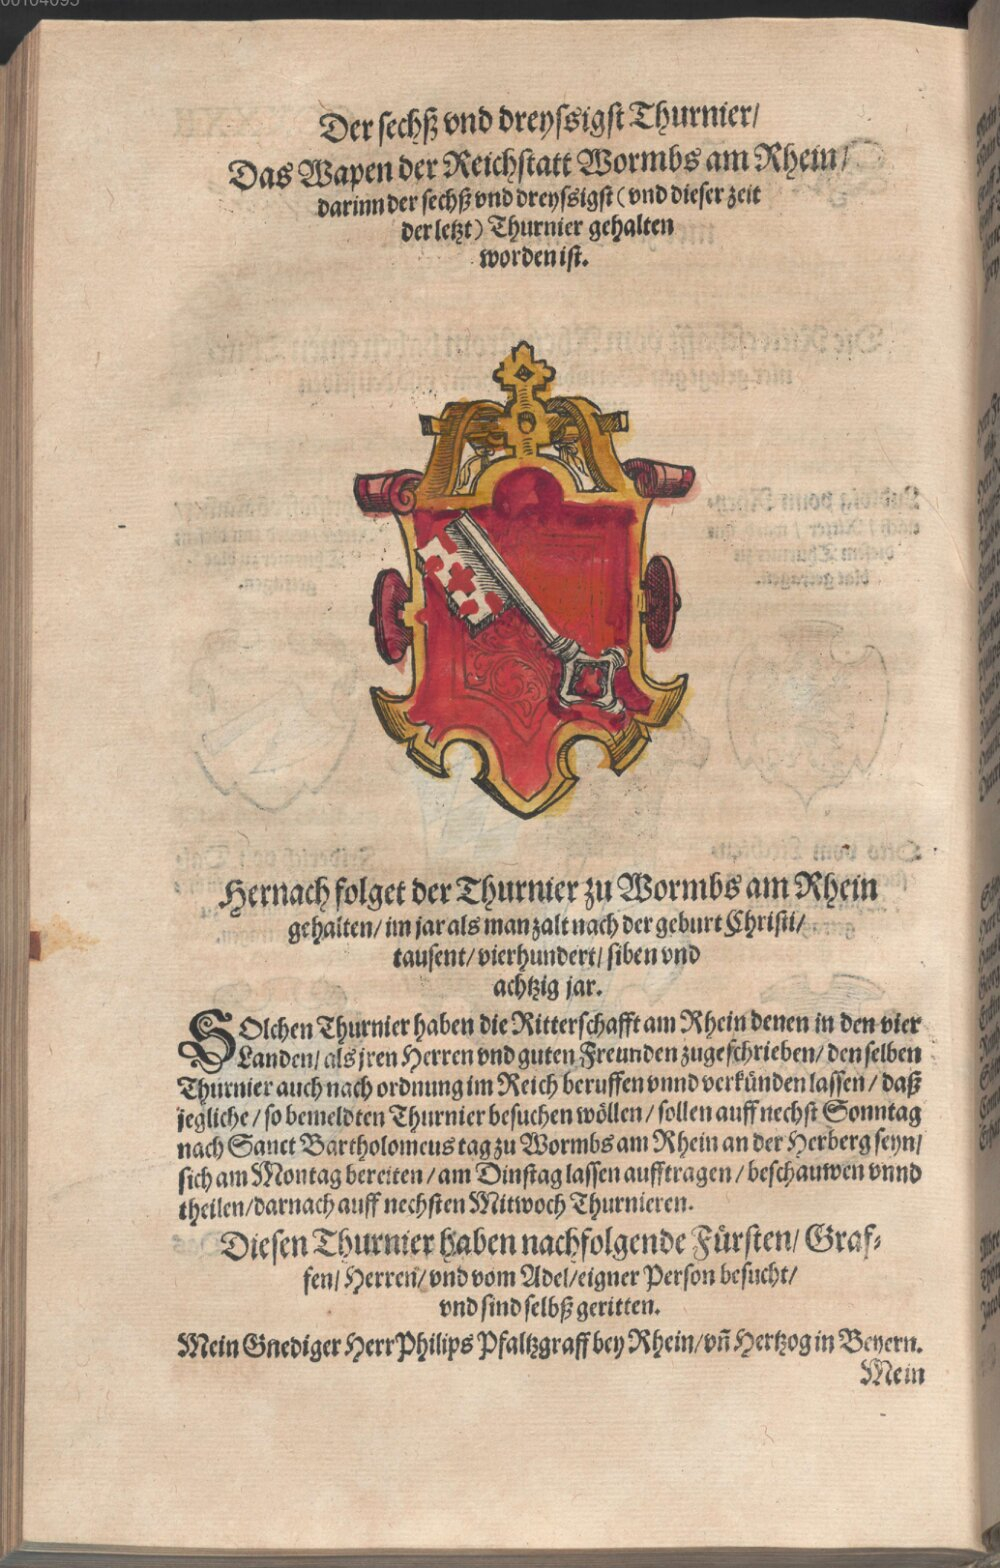 00104095
Der sechß vnd dreyssigst Thurnier/
Das Wapen der Reichstatt Wormbs am Rhein/
darinn der sechß vnd dreyssigst (vnd dieser zeit
der letzt) Thurnier gehalten
worden ist.
Hernach folget der Thurnier zu Wormbs am Rhein
gehalten/ im jar als man zalt nach der geburt Christi/
tausent/ vierhundert/ siben vnd
achtzig jar.
SOlchen Thurnier haben die Ritterschafft am Rhein denen in den vier
Landen/ als jren Herren vnd guten Freunden zugeschrieben/ denselben
Thurnier auch nach ordnung im Reich beruffen vnnd verkünden lassen/ daß
jegliche/ so bemeldten Thurnier besuchen wöllen/ sollen auff nechst Sonntag
nach Sanct Bartholomeus tag zu Wormbs am Rhein an der Herberg seyn/
sich am Montag bereiten/ am Dinstag lassen aufftragen/ beschauwen vnnd
theilen/ darnach auff nechsten Mitwoch Thurnieren.
Diesen Thurnier haben nachfolgende Fürsten/ Graf-
fen/ Herren/ vnd vom Adel/ eigner Person besucht/
vnd sind selbß geritten.
Mein Gnediger Herr Philips Pfaltzgraff bey Rhein/ vñ Hertzog in Beyern.
Mein